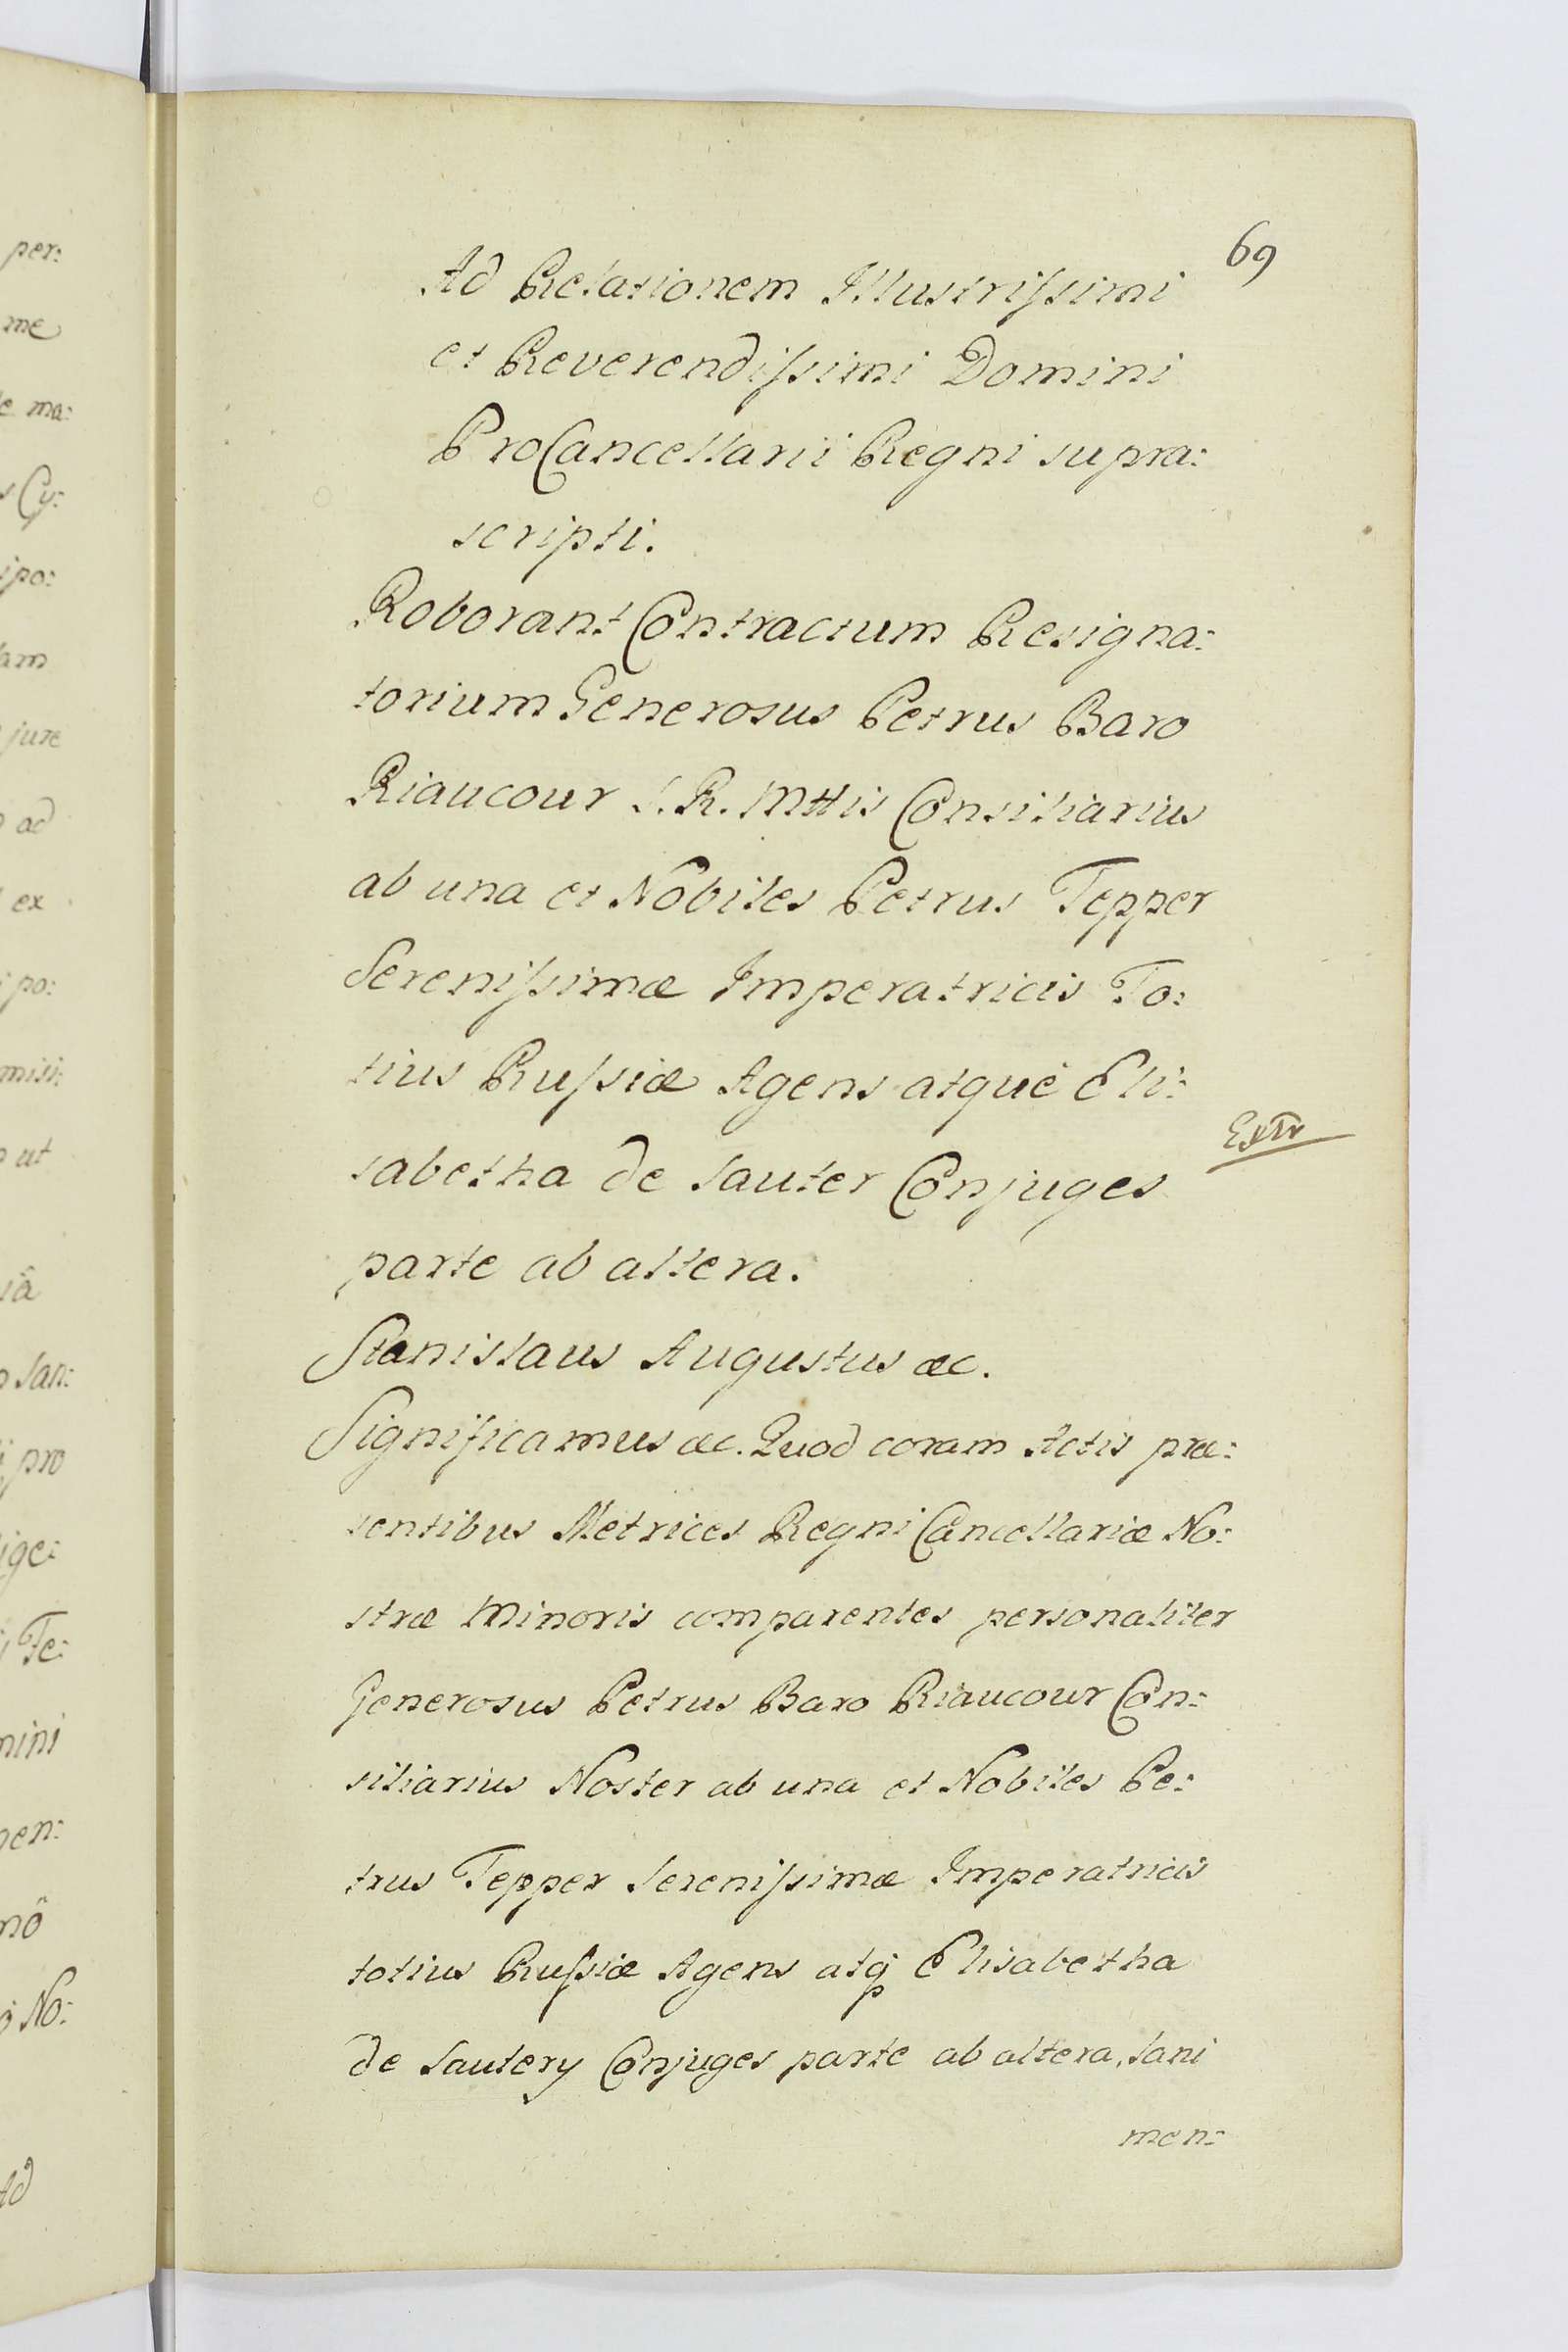 69
Ad Relationem Illustrissimi
et Reverendissimi Domini
ProCancellarii Regni supra:
scripti.
Roborant Contractum Resigna:
torium Generosus Petrus Baro
Riaucour S. R. Mttis Consiliarius
ab una et Nobiles Petrus Tepper
Serenissimæ Imperatricis To:
tius Russiæ Agens atque Eli:
sabetha de Sauter Conjuges
Extr
parte ab altera.
Stanislaus Augustus &c.
Significamus &c. Quod coram Actis præ:
sentibus Metrices Regni Cancellariæ No:
stræ Minoris comparentes personaliter
Generosus Petrus Baro Riaucour Con:
siliarius Noster ab una et Nobiles Pe:
trus Tepper Serenissimæ Imperatricis
totius Russiæ Agens atq Elisabetha
de Sautery Conjuges parte ab altera, sani
men:
per:
me
e ma:
s Cy:
ipo:
lam
jure
ad
ex
po:
misi:
ut
iâ
San:
pro
ige:
Te:
mini
nen:
nô
No:
Ad